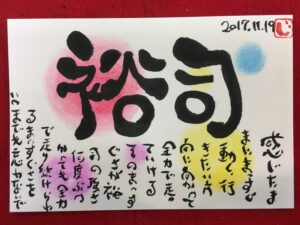 2017.11.19
裕司
感じたま
まにまっすぐ
動く行
きたい方
向にむかって
全力で走っ
ていける
そのまっす
ぐさが裕
司の強さ
何度ぶつ
かっても全力
で走り続けられ
るまっすぐさを
いつまでも忘れないで